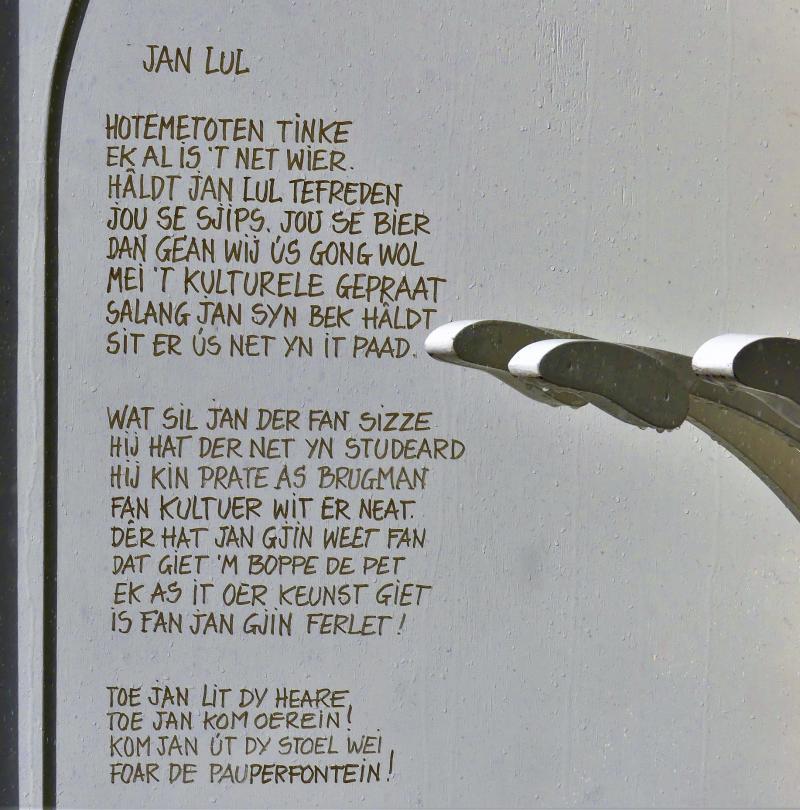 JAN LUL
HOTEMETOTEN TINKE
EK AL IS 'T NET WIER.
HÂLDT JAN LUL TEFREDEN
JOU SE SJIPS, JOU SE BIER
DAN GEAN WIJ ÚS GONG WOL
MEI 'T KULTURELE GEPRAAT
SALANG JAN SYN BEK HÂLDT
SIT ER ÚS NET YN IT PAAD.
WAT SIL JAN DER FAN SIZZE
HIJ HAT DER NET YN STUDEARD
HIJ KIN PRATE AS BRUGMAN
FAN KULTUER WIT ER NEAT.
DÊR HAT JAN GJIN WEET FAN
DAT GIET 'M BOPPE DE PET
EK AS IT OER KEUNST GIET
IS FAN JAN GJIN FERLET!
TOE JAN LIT DY HEARE
TOE JAN KOM OEREIN!
KOM JAN ÚT DY STOEL WEI
FOAR DE PAUPERFONTEIN!